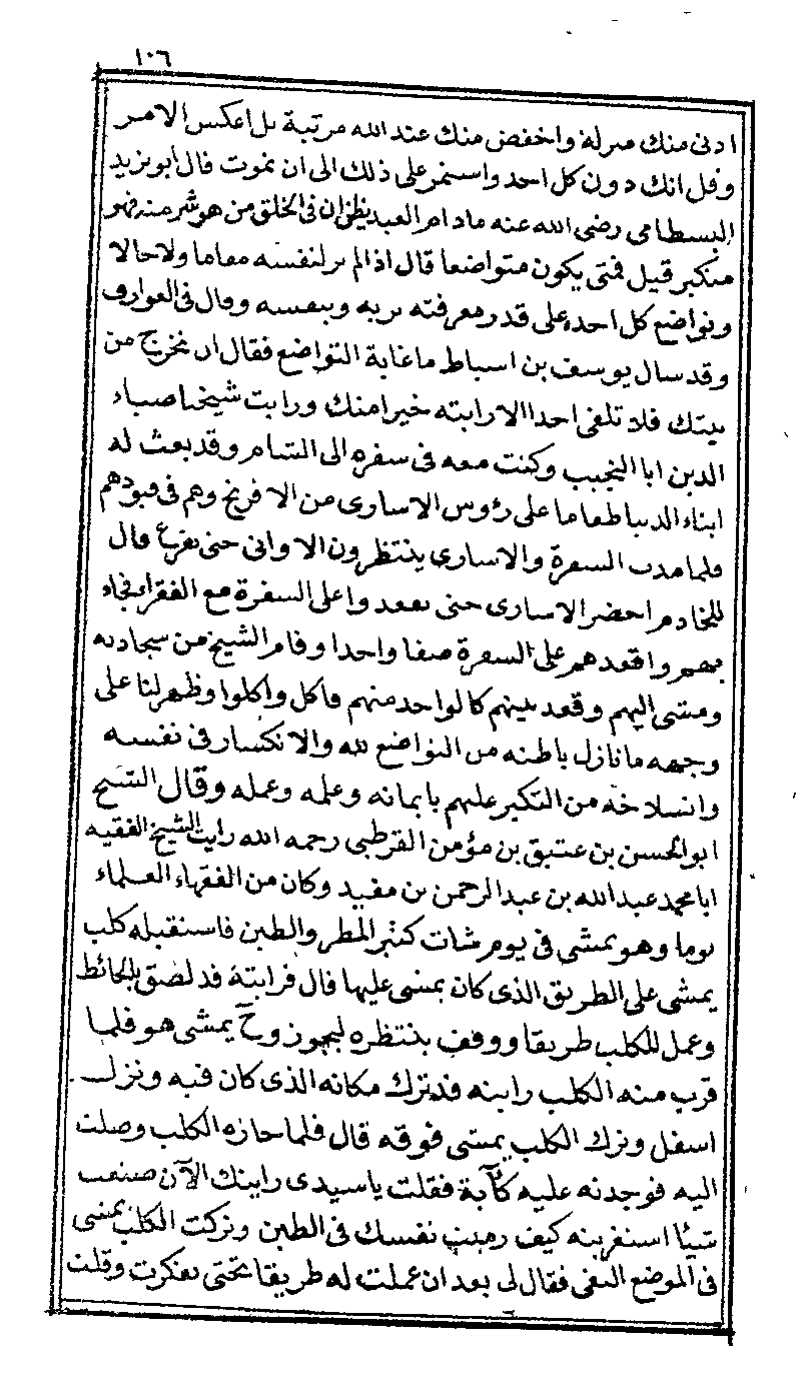 ١٠٦
ادنى منك منزلة واخفض منك عند الله مرتبة بل اعكس الامر
وقل انك دون كل احد واستمر على ذلك الى ان تموت قال ابو يزيد
البسطامي رضى الله عنه مادام العبد يظن ان في الخلق من هو شر منه فهو
متكبر قيل فمتى يكون متواضعا قال اذا لم ير لنفسه مقاما ولا حالا
وتواضع كل احد على قدر معرفته بربه وبنفسه وقال في العوارف
وقد سال يوسف بن اسباط ما غاية التواضع فقال ان تخرج من
بيتك فلا تلقى احدا الا رايته خيرا منك ورايت شيخنا ضياء
الدين ابا النجيب وكنت معه في سفره الى الشام وقد بعث له
ابناء الدنيا طعاما على رؤوس الاسارى من الافرنج وهم في قيودهم
فلما مدت السفرة والاسارى ينتظرون الاوانى حتى تفرغ قال
للخادم احضر الاسارى حتى يقعدوا على السفرة مع الفقراء فجاء
بهم واقعدهم على السفرة صفا واحدا وقام الشيخ من سجادته
ومشى اليهم وقعد بينهم كالواحد منهم فاكل واكلوا وظهر لنا على
وجهه ما نازل باطنه من التواضع لله والانكسار في نفسه
وانسلاخه من التكبر عليهم بايمانه وعلمه وعمله وقال الشيخ
ابو الحسن بن عتيق بن مؤمن القرطبى رحمه الله رايت الشيخ الفقيه
ابا محمد عبد الله بن عبد الرحمن بن مفيد وكان من الفقهاء العلماء
يوما وهو يمشى في يوم شات كثير المطر والطين فاستقبله كلب
يمشى على الطريق الذى كان يمشى عليها قال فرايته قد لصق بالحائط
وعمل للكلب طريقا ووقف ينتظره ليجوز وح يمشى هو فلما
قرب منه الكلب رايته قد ترك مكانه الذى كان فيه ونزل
اسفل وترك الكلب يمشى فوقه قال فلما جازه الكلب وصلت
اليه فوجدته عليه كآبة فقلت يا سيدى رايتك الآن صنعت
شيئا استغربته كيف رميت نفسك في الطين وتركت الكلب يمشى
في الموضع النقى فقال لى بعد ان عملت له طريقا تحتى تفكرت وقلت